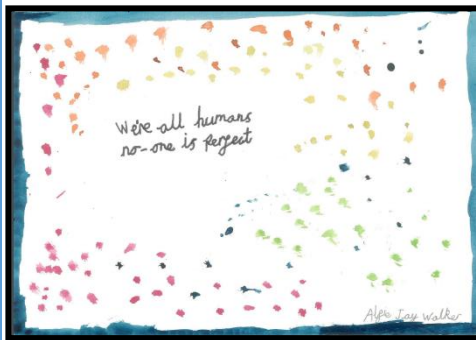 We're all humans
no-one is perfect
Alfie Jay Walker